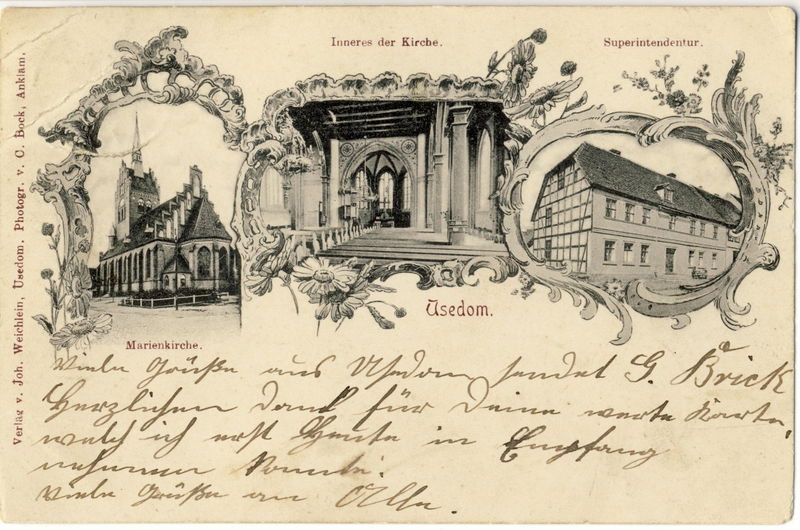 Inneres der Kirche.
Superintendentur.
Verlag v. Joh. Weichlein, Usedom. Photogr. v. C. Bock, Anklam.
Usedom.
Marienkirche.
Viele Grüße aus Usedom sendet G. Brick
Herzlichen Dank für Deine werte Karte,
welch ich erst Heute in Empfang
nehmen konnte.
Viele Grüße an Alle.